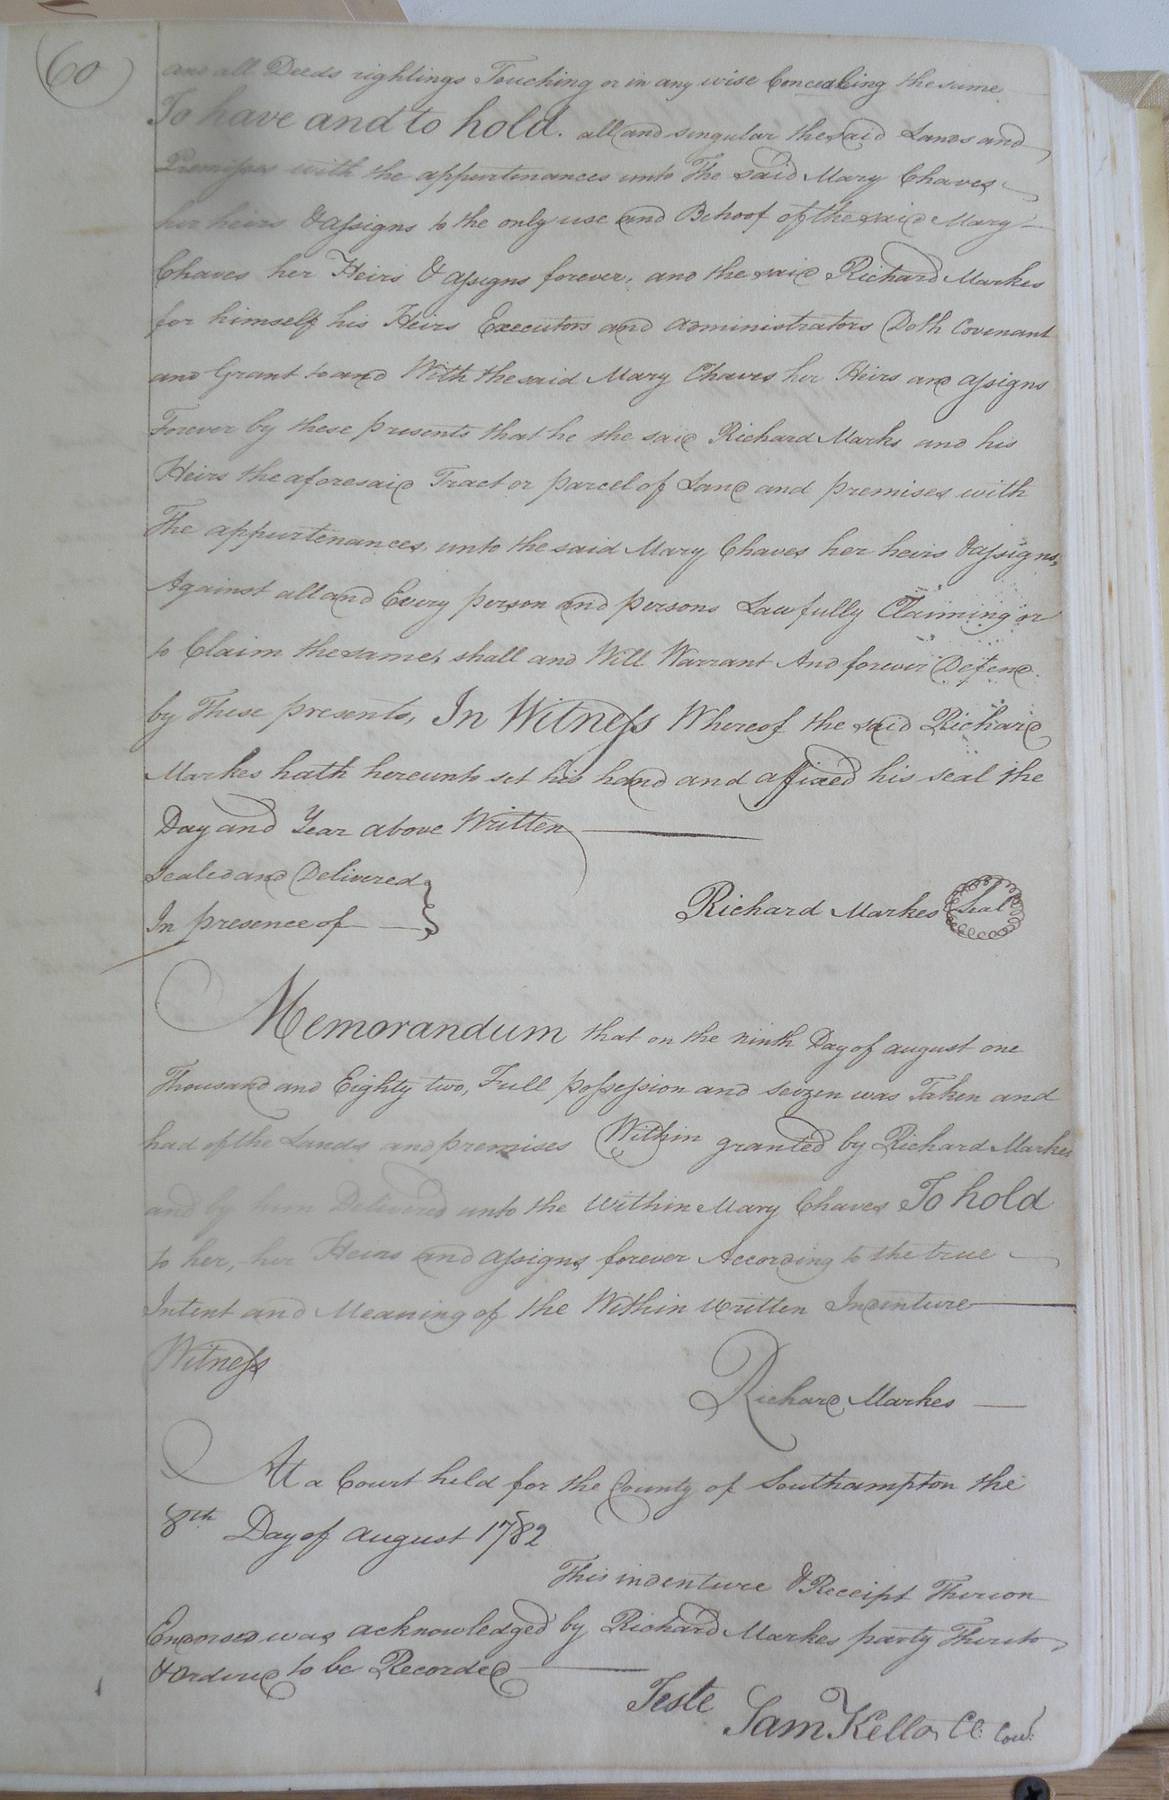 60
and all Deeds rightings Touching or in any wise Concealing the same
To have and to hold. all and singular the said Lands and
Premisses with the appurtenances unto The said Mary Chaves
her heirs & assigns to the only use and Behoof of the said Mary
Chaves her Heirs & assigns forever, and the said Richard Markes
for himself his Heirs Executors and administrators Doth Covenant
and Grant to and With the said Mary Chaves her Heirs and assigns
Forever by these presents that he the said Richard Marks and his
Heirs the aforesaid Tract or parcel of Land and premises with
The appurtenances, unto the said Mary Chaves her heirs & assigns,
Against all and Every person and persons Lawfully Claiming or
to Claim the same, shall and Will Warrant And forever Defend
by These presents, In Witness Whereof the said Richard
Markes hath hereunto set his hand and affixed his seal the
Day and Year above Written
Sealed and Delivered
In presence of
Richard Markes Seal
Memorandum that on the ninth Day of august one
Thousand and Eighty two, Full possession and seizen was Taken and
had of the Lands and premises Within granted by Richard Markes
and by him Delivered unto the Within Mary Chaves To hold
to her, her Heirs and assigns forever According to the true
Intent and Meaning of the Within written Indenture
Witness
Richard Markes
At a Court held for the County of Southampton the
8th Day of august 1782
This indenture & Receipt Thereon
Endorsed was acknowledged by Richard Markes party Thereto
& Ordered to be Recorded
Teste
Sam Kello, Cl. Cou.